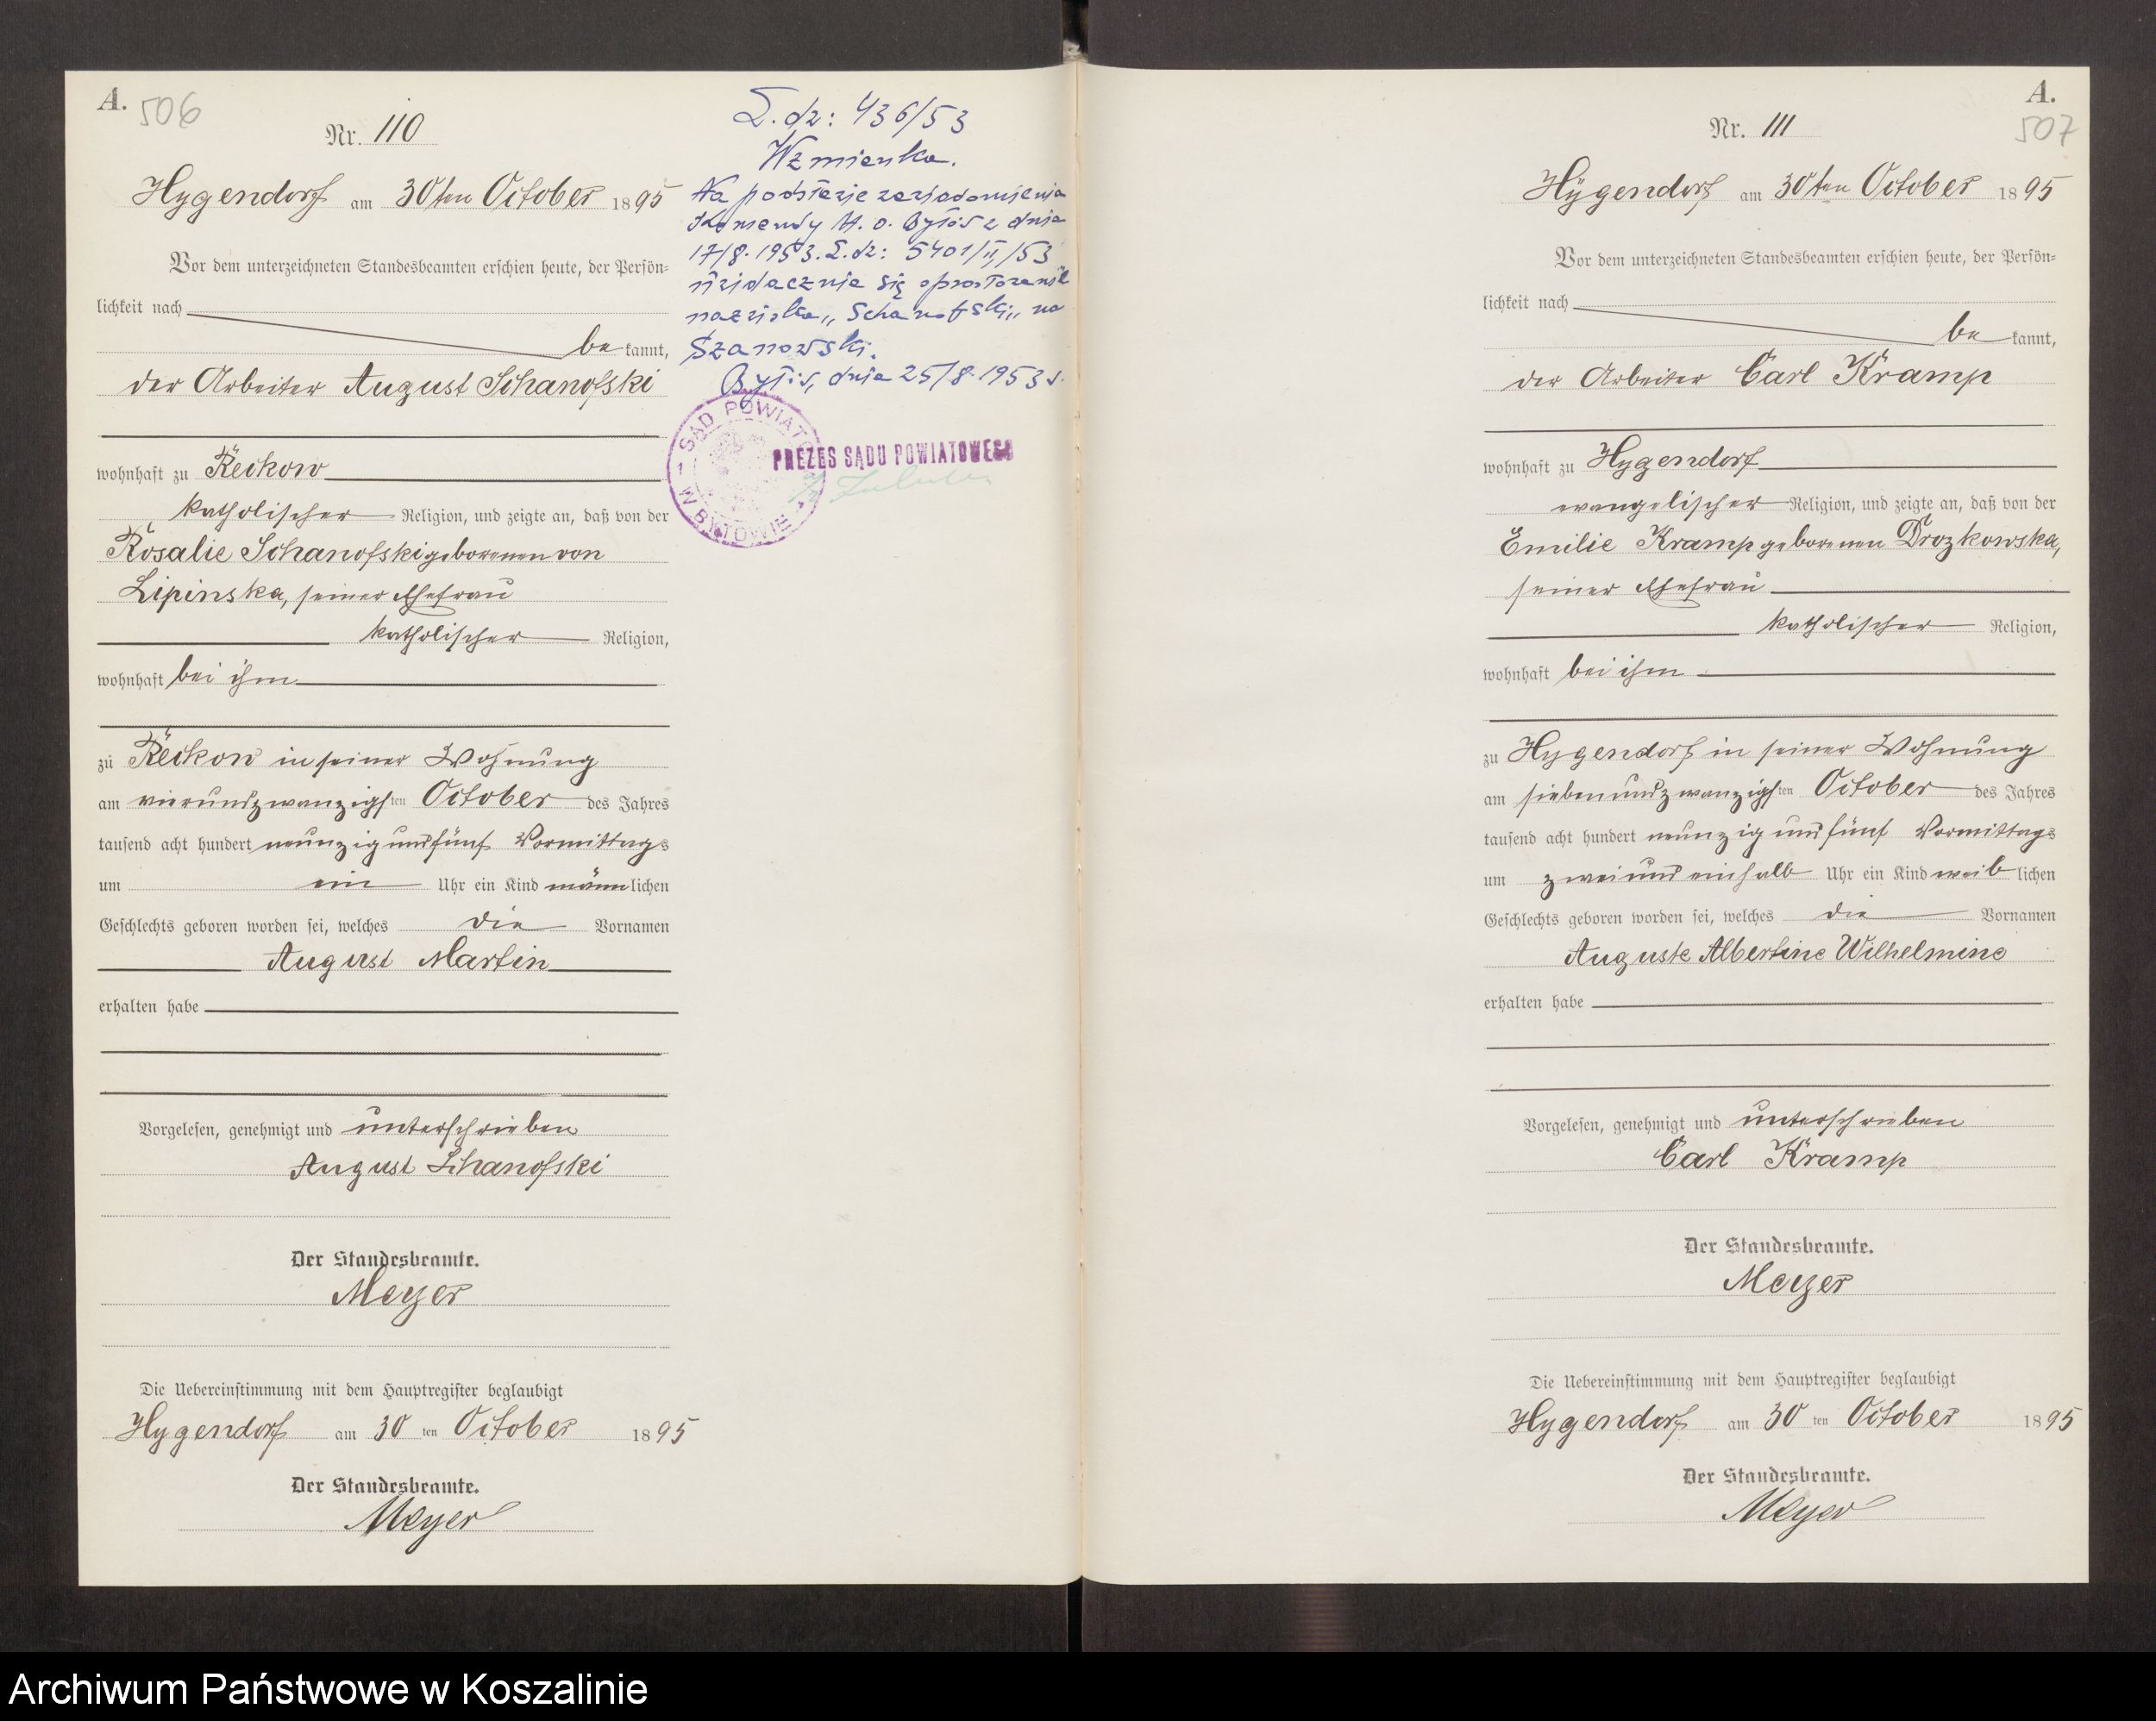 A. 506
Nr. 110
Hygendorf am 30ten October 1895
Vor dem unterzeichneten Standesbeamten erschien heute, der Persön-
lichkeit nach
be kannt,
der Arbeiter August Schanofski
wohnhaft zu Reckow
katholischer Religion, und zeigte an, daß von der
Rosalie Schanofski geborenen von
Lipinska, seiner Ehefrau
katholischer Religion,
wohnhaft bei ihm
zu Reckow in seiner Wohnung
am vierundzwanzigsten October des Jahres
tausend acht hundert neunzig und fünf Vormittags
um ein Uhr ein Kind männlichen
Geschlechts geboren worden sei, welches die Vornamen
August Martin
erhalten habe
Vorgelesen, genehmigt und unterschrieben
August Schanofski
Der Standesbeamte.
Meyer
Die Uebereinstimmung mit dem Hauptregister beglaubigt
Hygendorf am 30 ten October 1895
Der Standesbeamte.
Meyer
L.dz: 436/53
Wzmianka.
Na podstawie zawiadomienia
Komendy M.O. Bytów z dnia
17/8.1953. L.dz: 5401/II/53
uwidacznia się sprostowanie
nazwiska „Schanofski„ na
Szanowski.
Bytów, dnia 25/8.1953 r.
SĄD POWIATOWY W BYTOWIE
PREZES SĄDU POWIATOWEGO
A.
507
Nr. 111
Hygendorf am 30ten October 1895
Vor dem unterzeichneten Standesbeamten erschien heute, der Persön-
lichkeit nach
be kannt,
der Arbeiter Carl Kramp
wohnhaft zu Hygendorf
evangelischer Religion, und zeigte an, daß von der
Emilie Kramp geborenen Drozkowska,
seiner Ehefrau
katholischer Religion,
wohnhaft bei ihm
zu Hygendorf in seiner Wohnung
am siebenundzwanzigsten October des Jahres
tausend acht hundert neunzig und fünf Vormittags
um zwei und einhalb Uhr ein Kind weiblichen
Geschlechts geboren worden sei, welches die Vornamen
Auguste Albertine Wilhelmine
erhalten habe
Vorgelesen, genehmigt und unterschrieben
Carl Kramp
Der Standesbeamte.
Meyer
Die Uebereinstimmung mit dem Hauptregister beglaubigt
Hygendorf am 30 ten October 1895
Der Standesbeamte.
Meyer
Archiwum Państwowe w Koszalinie